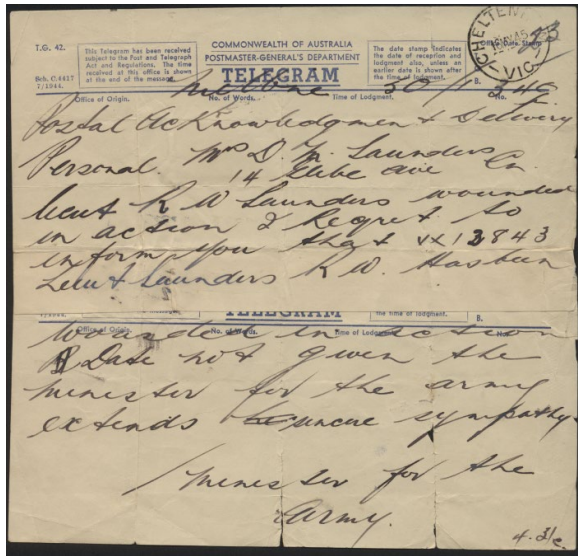 T.G. 42.
This Telegram has been received
subject to the Post and Telegraph
Act and Regulations. The time
received at this office is shown
at the end of the message.
Sch. C.4417
7/1944.
COMMONWEALTH OF AUSTRALIA
POSTMASTER-GENERAL'S DEPARTMENT
TELEGRAM
The date stamp indicates
the date of reception and
lodgment also, unless an
earlier date is shown after
the time of lodgment.
CHELTEN
VIC
B.
Office of Origin. No. of Words. Time of Lodgment. No.
Melbne 30/1 3 40
Postal Acknowledgment & Delivery
Personal. Mrs D. M. Saunders
14 Glebe ave
lieut R W Saunders wounded
in action I Regret to
inform you that vx12843
Lieut Saunders R W. Has been
7/1944.
TELEGRAM
the time of lodgment.
B.
Office of Origin. No. of Words. Time of Lodgment. No.
wounded in action
Date not given the
minister for the army
extends sincere sympathy
minister for the
Army.